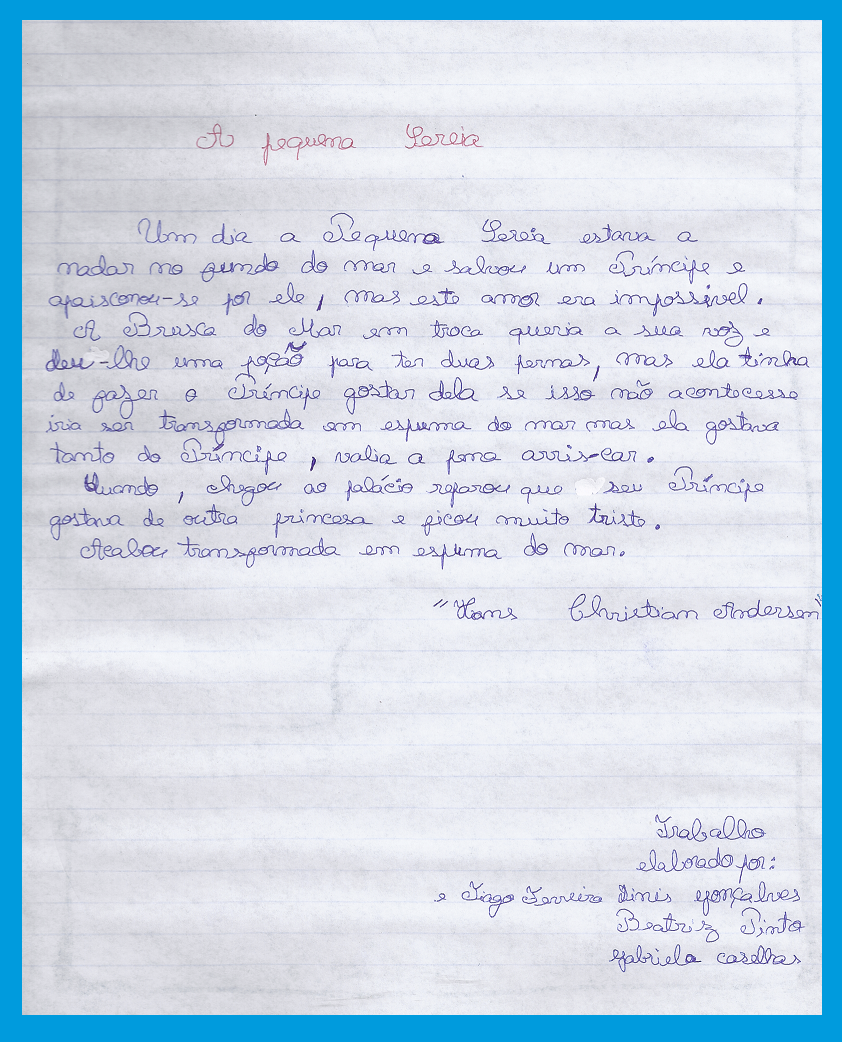 A pequena Sereia
Um dia a Pequena Sereia estava a
nadar no fundo do mar e salvou um Príncipe e
apaisconou-se por ele, mas este amor era impossível.
A Bruxca do Mar em troca queria a sua voz e
deu-lhe uma poção para ter duas pernas, mas ela tinha
de fazer o Príncipe gostar dela se isso não acontecesse
iria ser transformada em espuma do mar mas ela gostava
tanto do Príncipe, valia a pena arriscar.
Quando, chegou ao palácio reparou que seu Príncipe
gostava de outra princesa e ficou muito triste.
Acabou transformada em espuma do mar.
"Hans Christian Andersen"
Trabalho
elaborado por:
e Tiago Ferreira Dinis Gonçalves
Beatriz Pinto
Gabriela caselhas